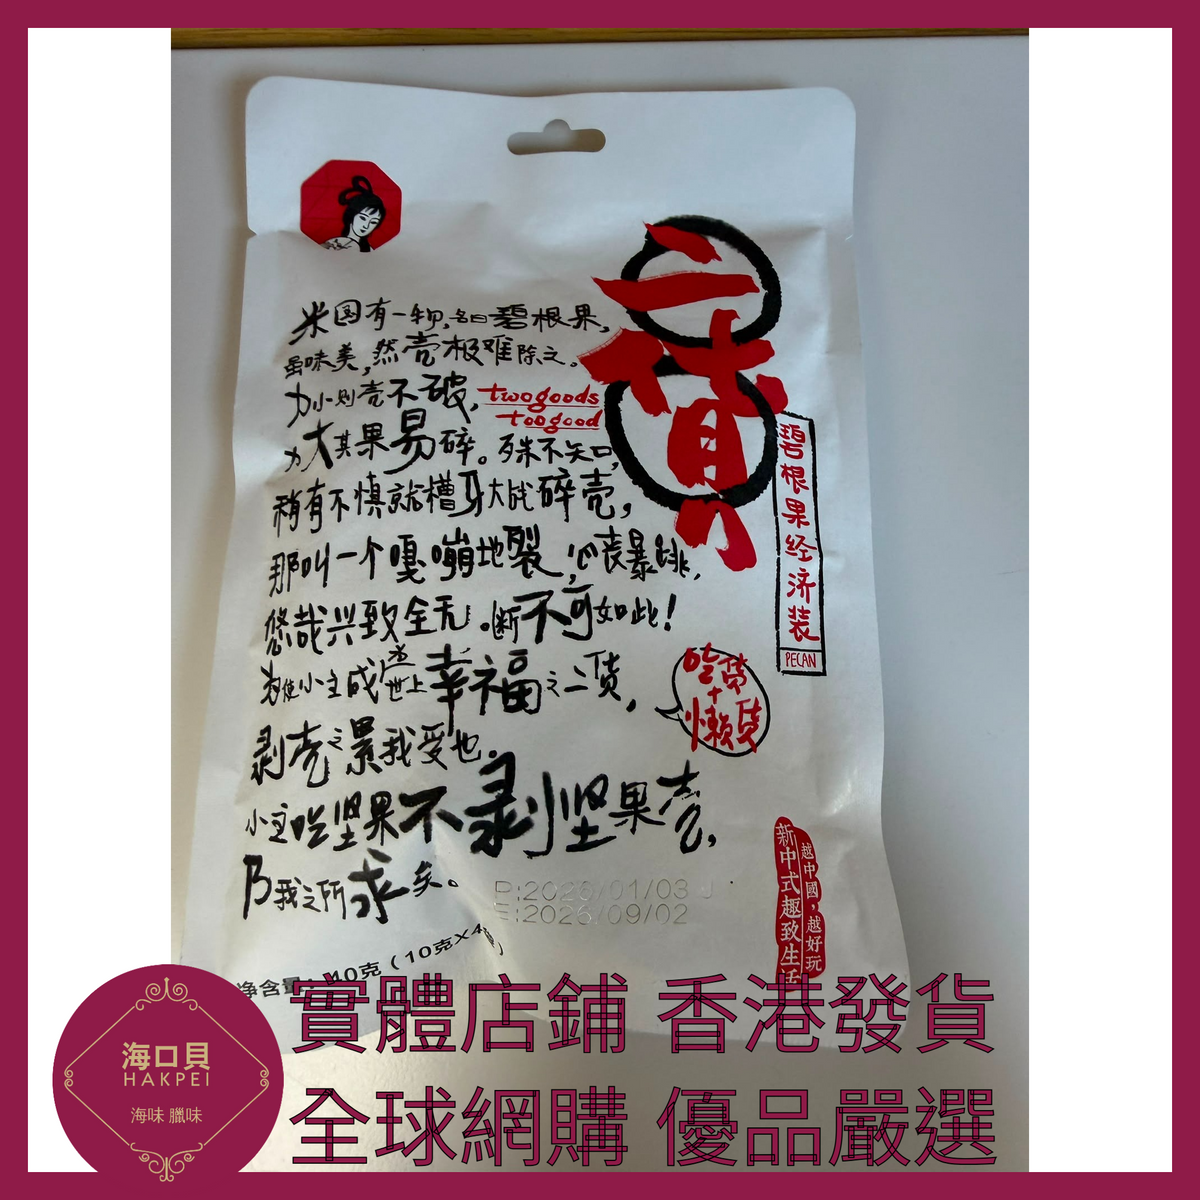 米国有一物,名曰碧根果,
虽味美,然壳极难除之。
力小则壳不破,
力大其果易碎。殊不知,
稍有不慎就糟身大战碎壳,
那叫一个嘎嘣地裂,心丧暴跳,
悠哉兴致全无。断不可如此!
为使小主成为世上幸福之二货,
剥壳之累我受也。
小主吃坚果不剥坚果壳,
乃我之所求矣。
twogoods
toogood
二货
碧根果经济装
PECAN
吃货
+
懒货
越中國,越好玩
新中式趣致生活
P:2026/01/03 J
E:2026/09/02
净含量:40克(10克X4
海口貝
HAKPEI
海味 臘味
實體店鋪 香港發貨
全球網購 優品嚴選